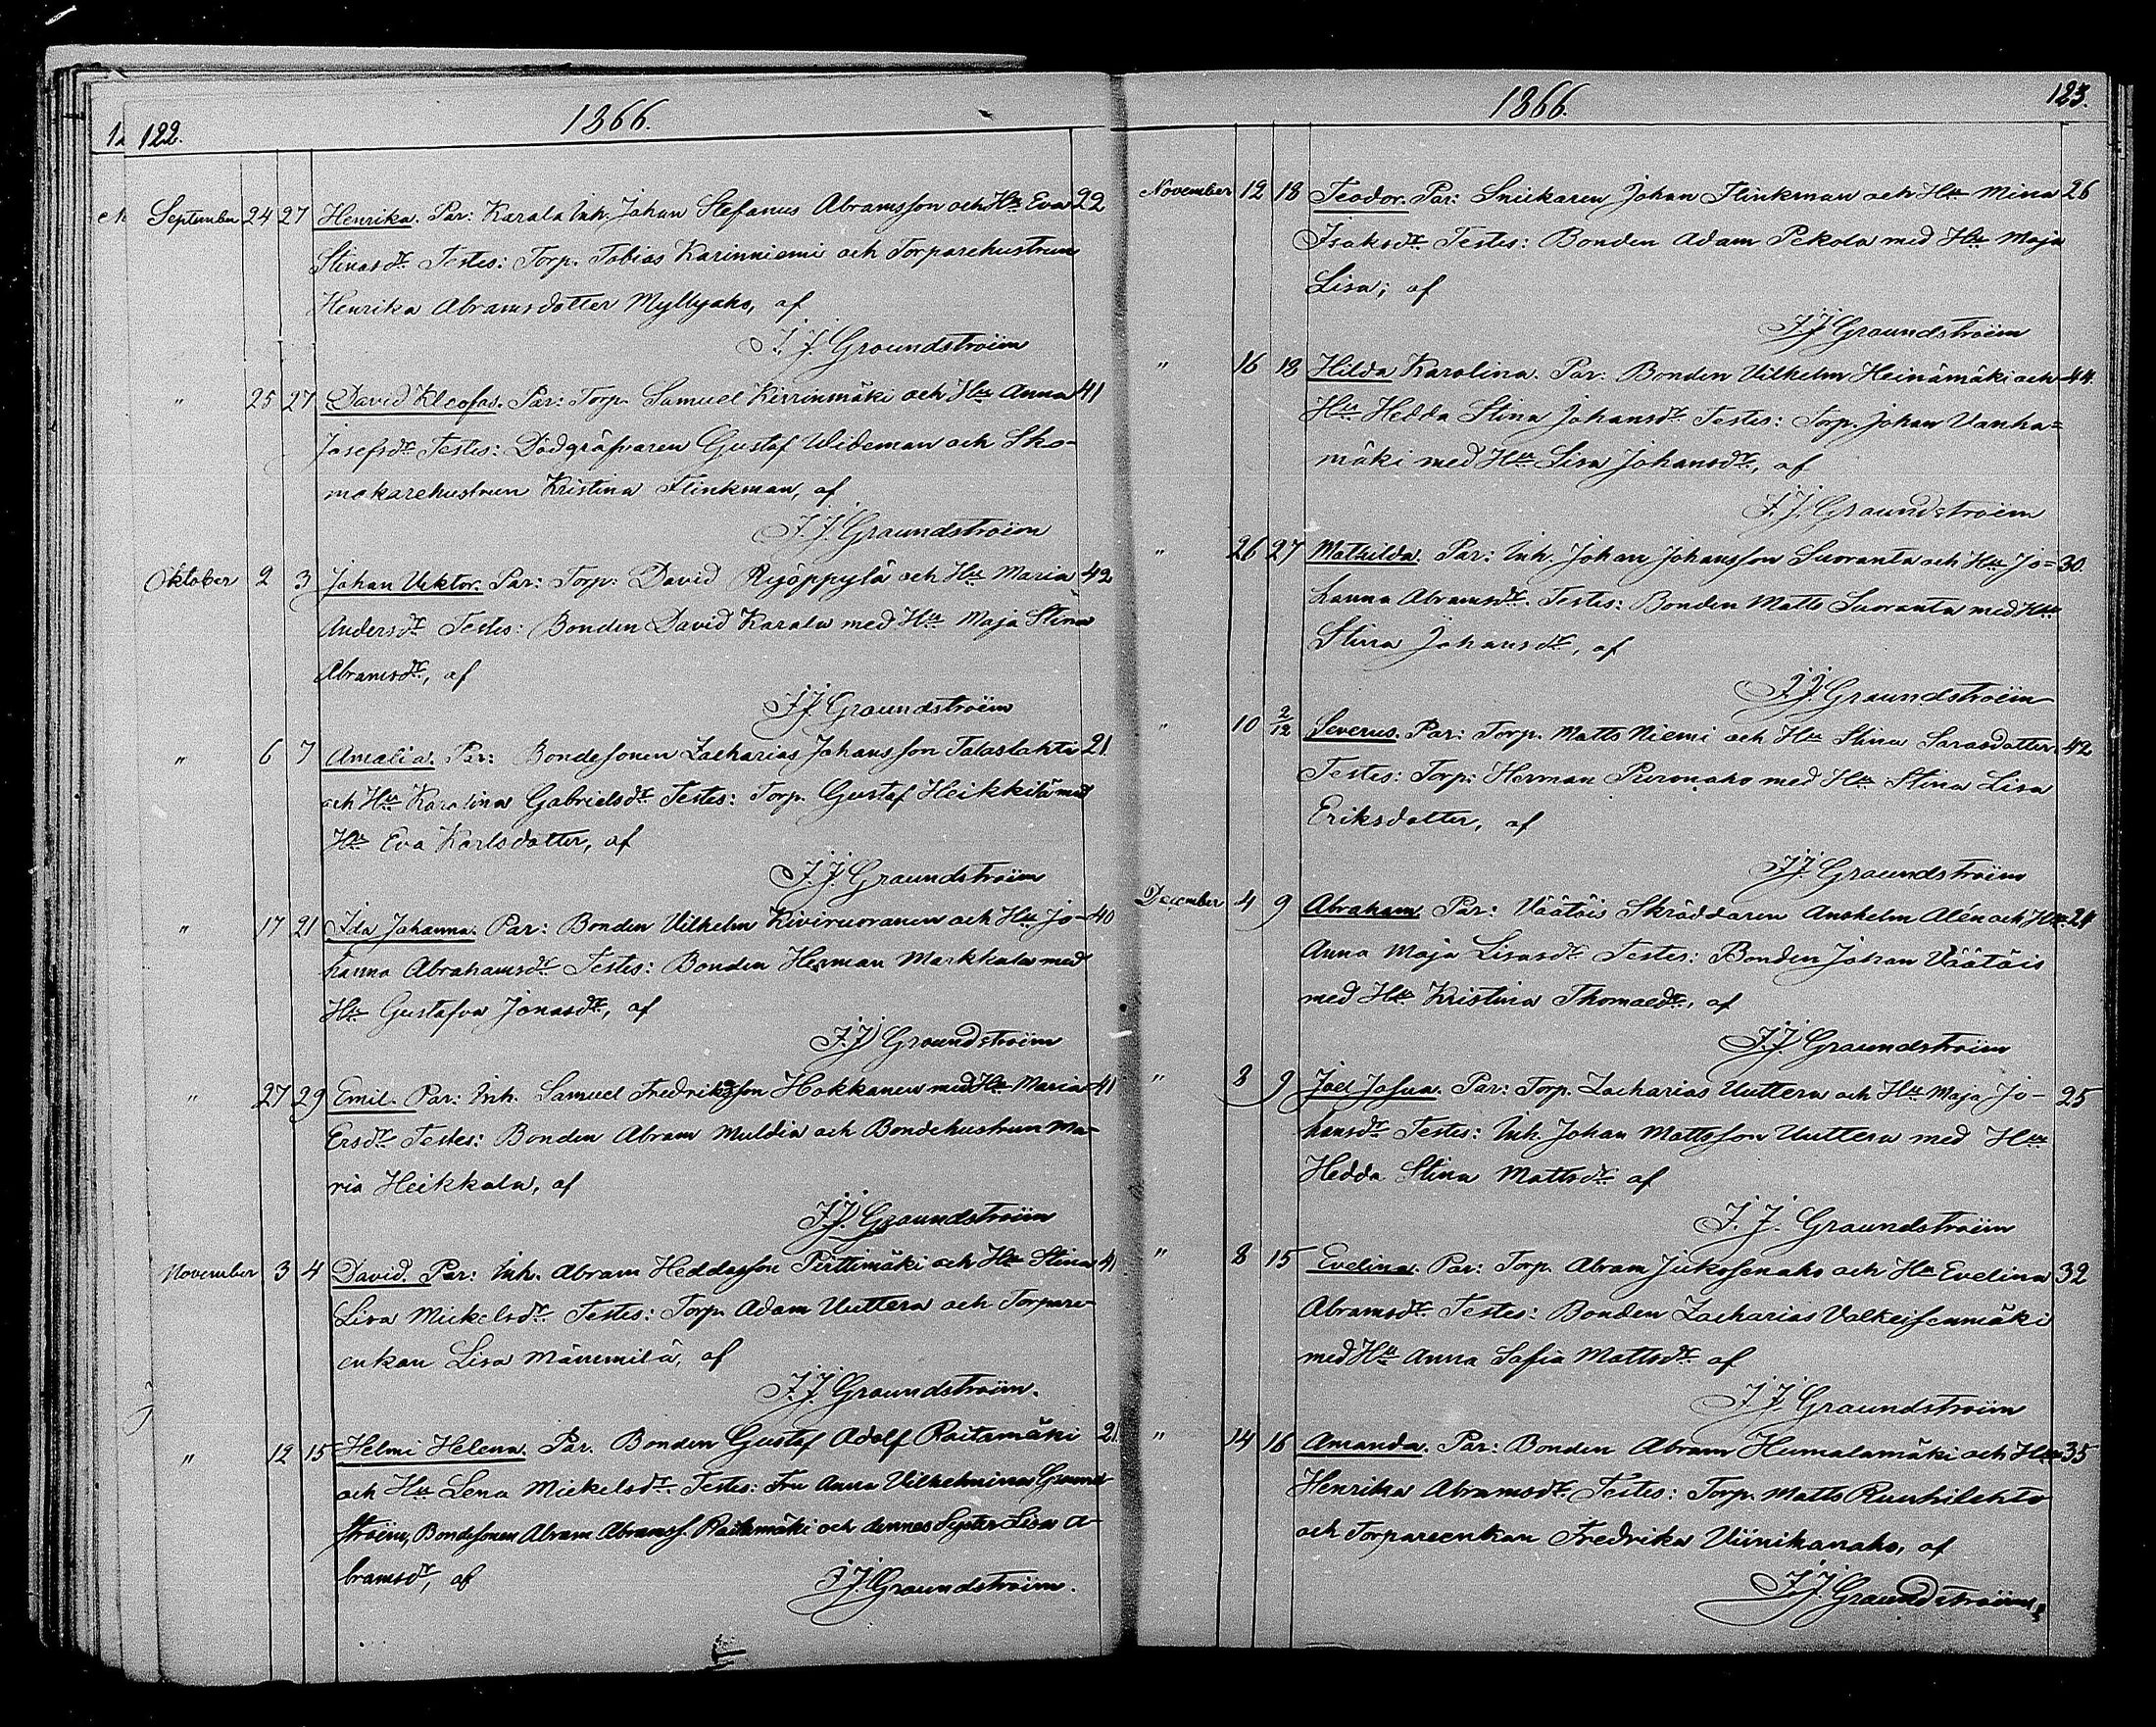 122.
1866.
September 24 27 Henrika. Par: Karala Inh. Johan Stefanus Abramsson och Hu Eva 22
Stinasdr. Testes: Torp. Tobias Karinniemi och Torparehustrun
Henrika Abramsdotter Myllyaho, af
J. J. Graundstroëm
" 25 27 David Kleofas. Par: Torp. Samuel Kirrinmäki och Hu Anna 41
Josefsdr. Testes: Dödgräfvaren Gustaf Wideman och Sko-
makarehustrun Kristina Flinkman, af
J. J. Graundstroëm
Oktober 2 3 Johan Viktor. Par: Torp: David Ryöppylä och Hu Maria 42
Andersdr. Testes: Bonden David Karala med Hu Maja Stina
Abramsdr, af
J J Graundstroëm
" 6 7 Amalia. Par: Bondesonen Zacharias Johansson Talaslahti 21
och Hu Karolina Gabrielsdr. Testes: Torp. Gustaf Heikkilä med
Hu Eva Karlsdotter, af
J. J. Graundstroëm
" 17 21 Ida Johanna. Par: Bonden Vilhelm Kiviruoranen och Hu Jo- 40
hanna Abrahamsdr. Testes: Bonden Herman Markkula med
Hu Gustafva Jonasdr, af
J. J Graundstroëm
" 27 29 Emil. Par: Inh. Samuel Fredriksson Hokkanen med Hu Maria 41
Ersdr. Testes: Bonden Abram Muldia och Bondehustrun Ma-
ria Heikkala, af
J J. Graundstroëm
November 3 4 David. Par: Inh. Abram Heddasson Pirttimäki och Hu Stina 41
Lisa Mickelsdr. Testes: Torp. Adam Uuttera och Torpare-
enkan Lisa Männmilä, af
J. J. Graundstroëm.
" 12 15 Helmi Helena. Par. Bonden Gustaf Adolf Raitamäki 21.
och Hu Lena Mickelsdr. Testes: Fru Anna Vilhelmina Graund-
stroëm, Bondesonen Abram Abramss. Raitamäki och dennes Syster Lisa A-
bramsdr, af J. J. Graundstroëm.
1866.
123.
November 12 18 Teodor. Par: Snickaren Johan Flinkman och Hu Mina 26
Isaksdr. Testes: Bonden Adam Pekola med Hu Maja
Lisa; af
J. J Graundstroëm
" 16 18 Hilda Karolina. Par: Bonden Vilhelm Heinämäki och 44.
Hu Hedda Stina Johansdr. Testes: Torp. Johan Vanha=
mäki med Hu Lisa Johansdr, af
J. J. Graundstroëm
" 26 27 Mathilda. Par: Inh. Johan Johansson Suoranta och Hu Jo= 30.
hanna Abramsdr. Testes: Bonden Matts Suoranta med Hu
Stina Johansdr, af
J. J Graundstroëm
" 10 2/12 Severus. Par: Torp. Matts Niemi och Hu Stina Sarasdotter. 42
Testes: Torp: Herman Puronaho med Hu Stina Lisa
Eriksdotter, af
J J. Graundstroëm
December 4 9 Abraham Par: Väätäis Skräddaren Anshelm Alén och Hu 24
Anna Maja Lisasdr. Testes: Bonden Johan Väätäis
med Hu Kristina Thomasdr, af
J. J. Graundstroëm
" 8 9 Joel Josua. Par: Torp. Zacharias Uuttera och Hu Maja Jo- 25
hansdr. Testes: Inh. Johan Mattsson Uuttera med Hu
Hedda Stina Mattsdr. af
J. J. Graundstroëm
" 8 15 Evelina. Par: Torp. Abram Jukosenaho och Hu Evelina 32
Abramsdr. Testes: Bonden Zacharias Valkeisenmäki
med Hu Anna Sofia Mattsdr. af
J J. Graundstroëm
" 14 16 Amanda. Par: Bonden Abram Humalamäki och Hu 35
Henrika Abramsdr. Testes: Torp. Matts Ruuhilehto
och Torpareenkan Fredrika Viinikanaho, af
J. J. Graundstroëm